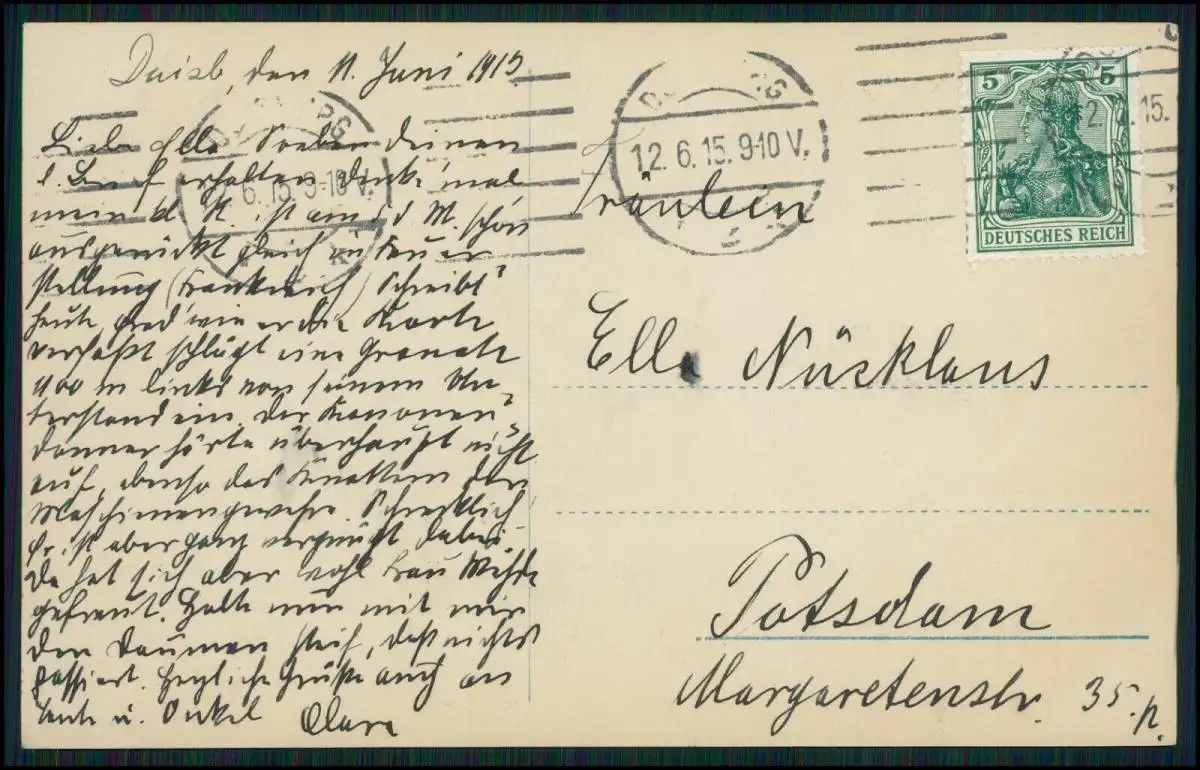 Duisb, den 11. Juni 1915
Liebe Ella! Soeben deinen
l. Brief erhalten, denke mal
mein d. K. ist am d. M. schon
ausgerückt gleich in Feuer
stellung (Frankreich) Schreibt
heute, grad wie er die Karte
verfaßt schlägt eine Granate
400 m links von seinem Un-
terstand ein. Der Kanonen-
donner hörte überhaupt nicht
auf, ebenso das Knattern der
Maschinengewehre. Schrecklich
Er ist aber ganz vergnügt dabei.
Da hat sich aber wohl Frau
gefreut. Halte nun mit mir
den Daumen steif, daß nichts
passiert. Herzliche Grüße auch an
Tante u. Onkel Clara
12.6.15.9-10V.
6.15.9-10V.
5 5
DEUTSCHES REICH
Fräulein
Ella Nüsklaus
Potsdam
Margaretenstr. 35. p.